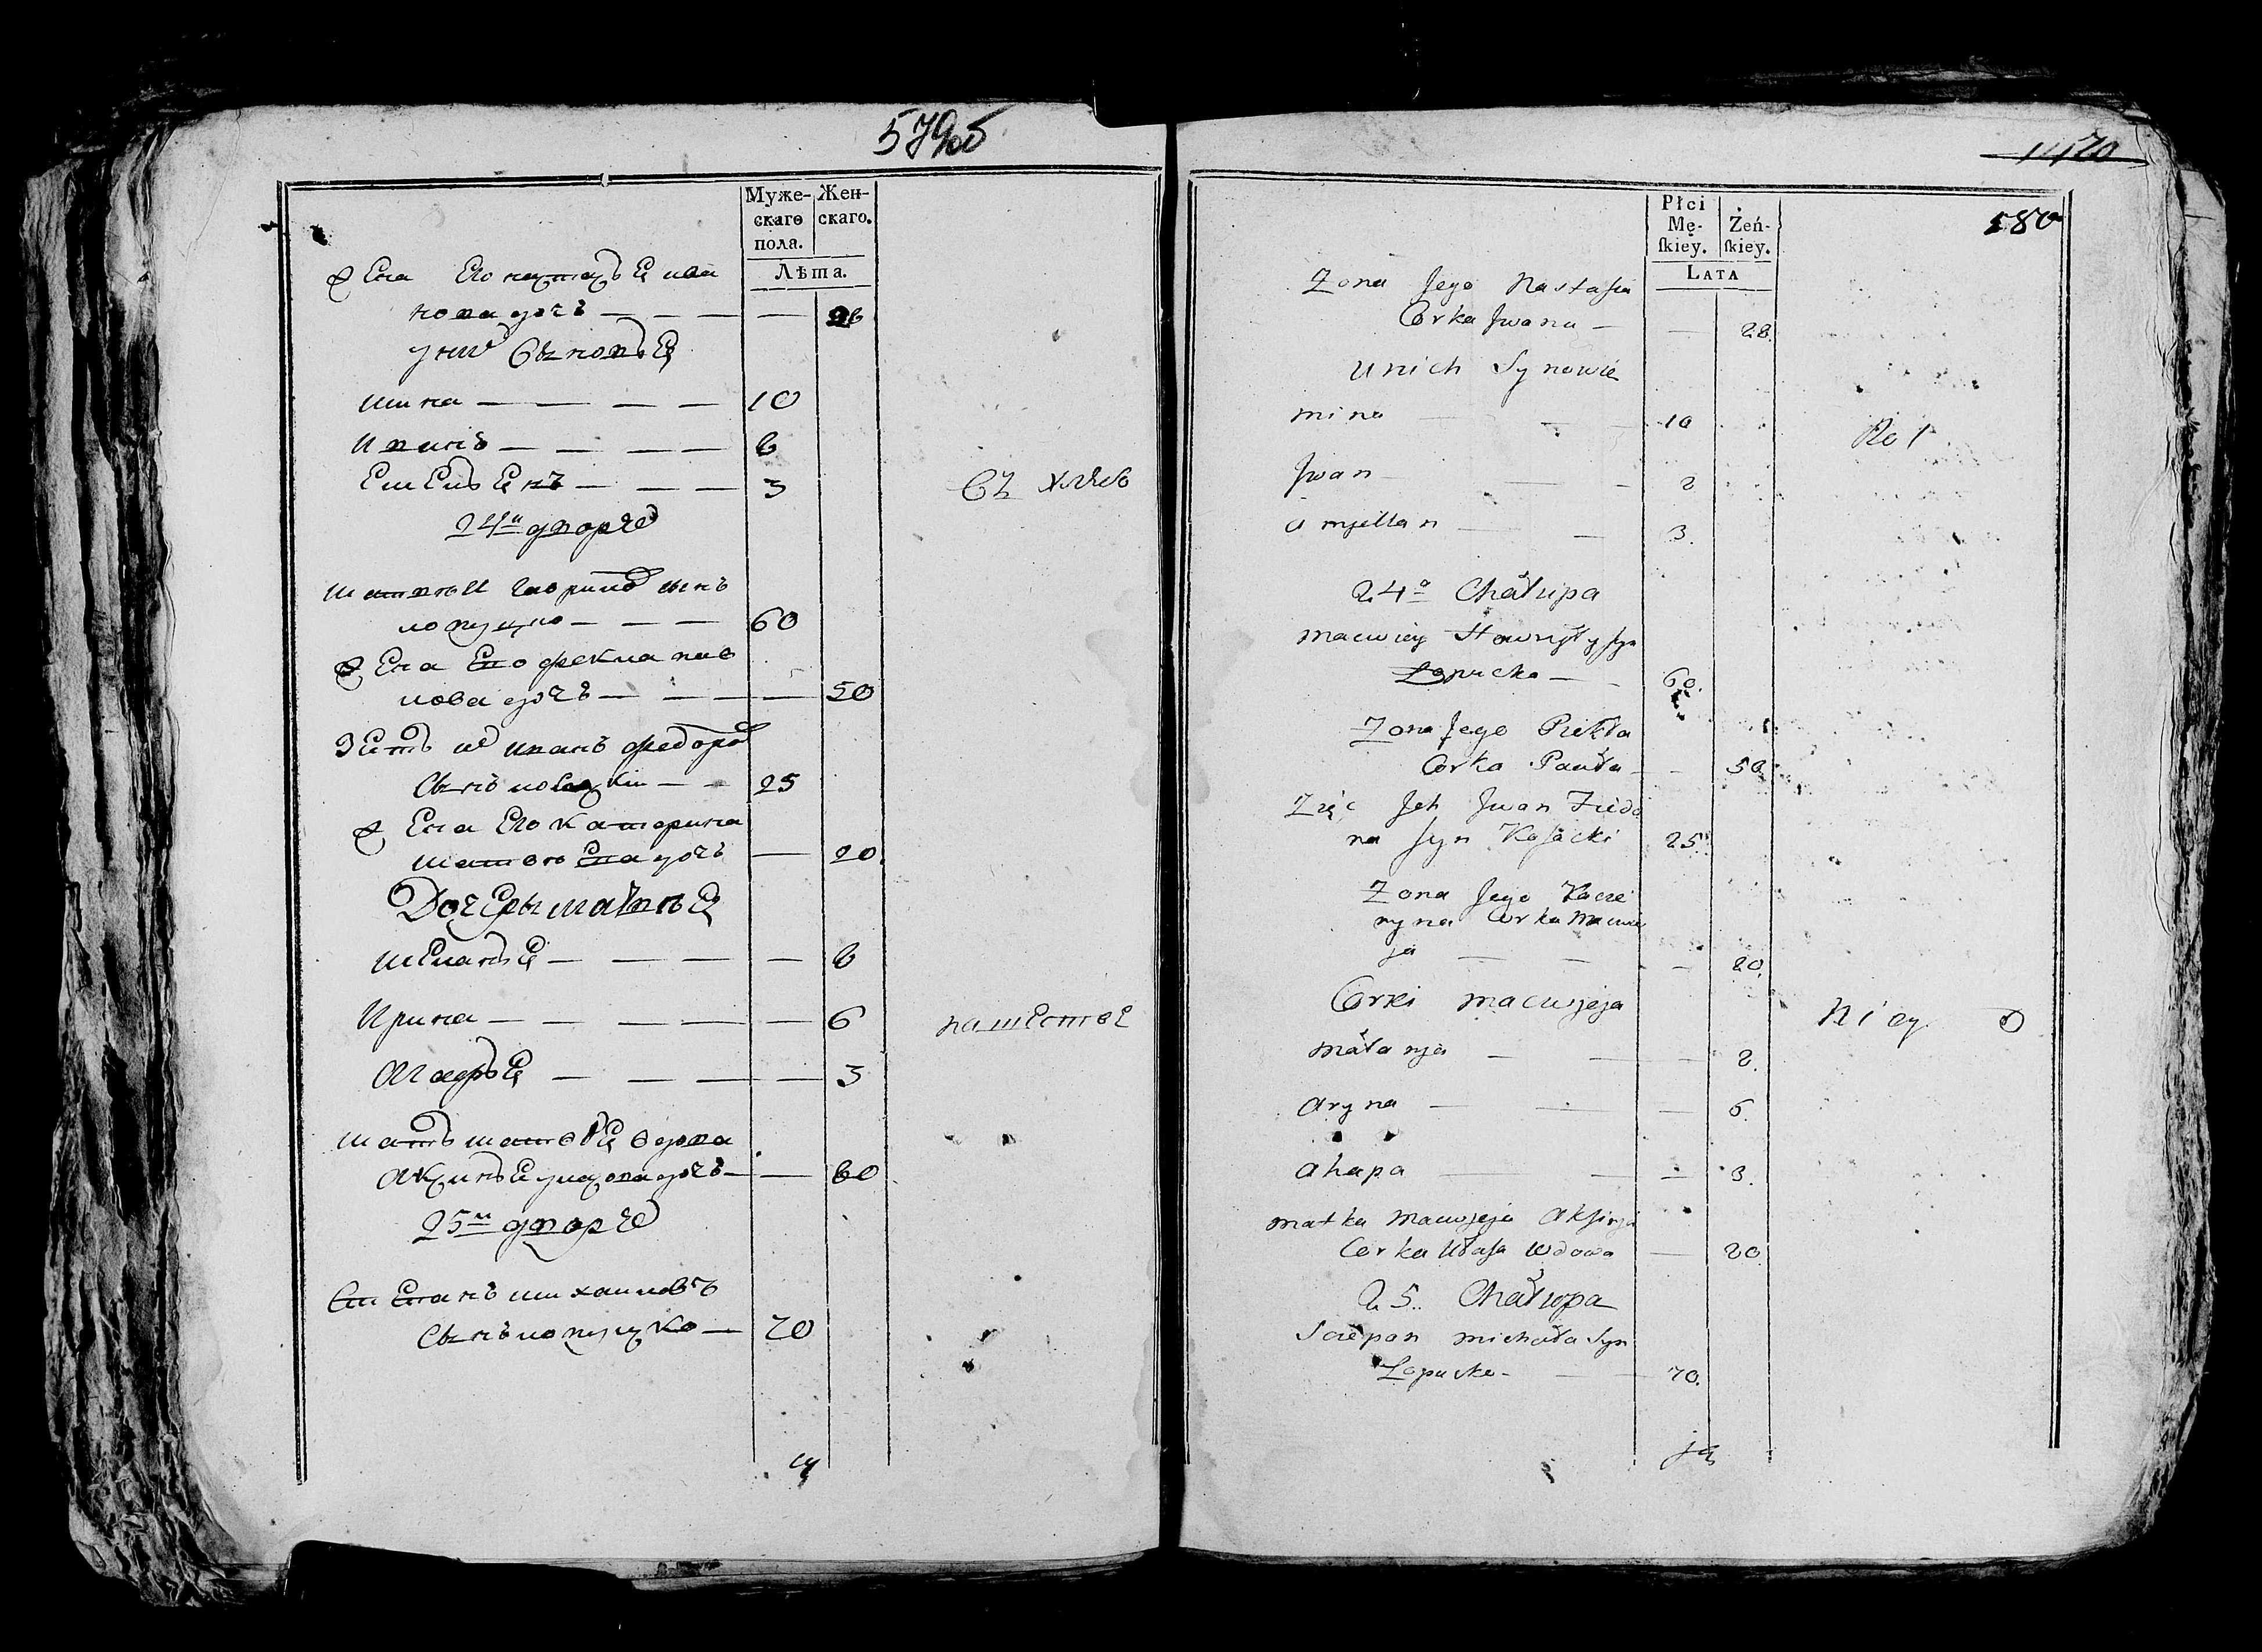 579об
Муже-
скаго
пола.
Жен-
скаго.
Лѣта.
жена его настасья ива
нова дочь — — — —
у них сыновья
мина — — — — 10
иванъ — — — — 8
емельянъ — — — 3
съ хлѣб
24й дворъ
матвѣй гаврилов сынъ
лопуцко — — — 60
жена его фекла пав
лова дочь — — — — 50
зять их иванъ федоров
сынъ — — 25
жена его катерина
матвѣева дочь — 20
Дочеры матвѣя
меланья — — — — 8
Ирина — — — — — 6
агафья — — — — — 3
мать матвѣя вдова
аксинья уласова дочь — — 80
25й дворъ
степанъ михаиловъ
сынъ лопуцко — 70
1170
580
Płci
Mę-
ſkiey.
Żeń-
ſkiey.
LATA
Zona Jego Nastasia
Corka Jwana — — 28.
u nich Synowie
mina — — 10
Jwan — — 8
Amiellan — — 3.
24a Chałupa
Macwiey Hawryły syn
Łopucko — — 60.
Zona Jego Piekła
Corka Pawła — — 50
Zięć Jch Jwan Fiedo
ra syn Kosacki 25.
Zona Jego Kacie
ryna Corka Macwie
ja — — — 20.
Corki Macwjeja
Małanja — — — 8.
Aryna — — — 6.
Ahapa — — — 3.
Matka Macwjeja Aksinja
Corka Ułasa wdowa — 80
25.. Chałupa
Sciepan Michała Syn
Łopucko — — 70.